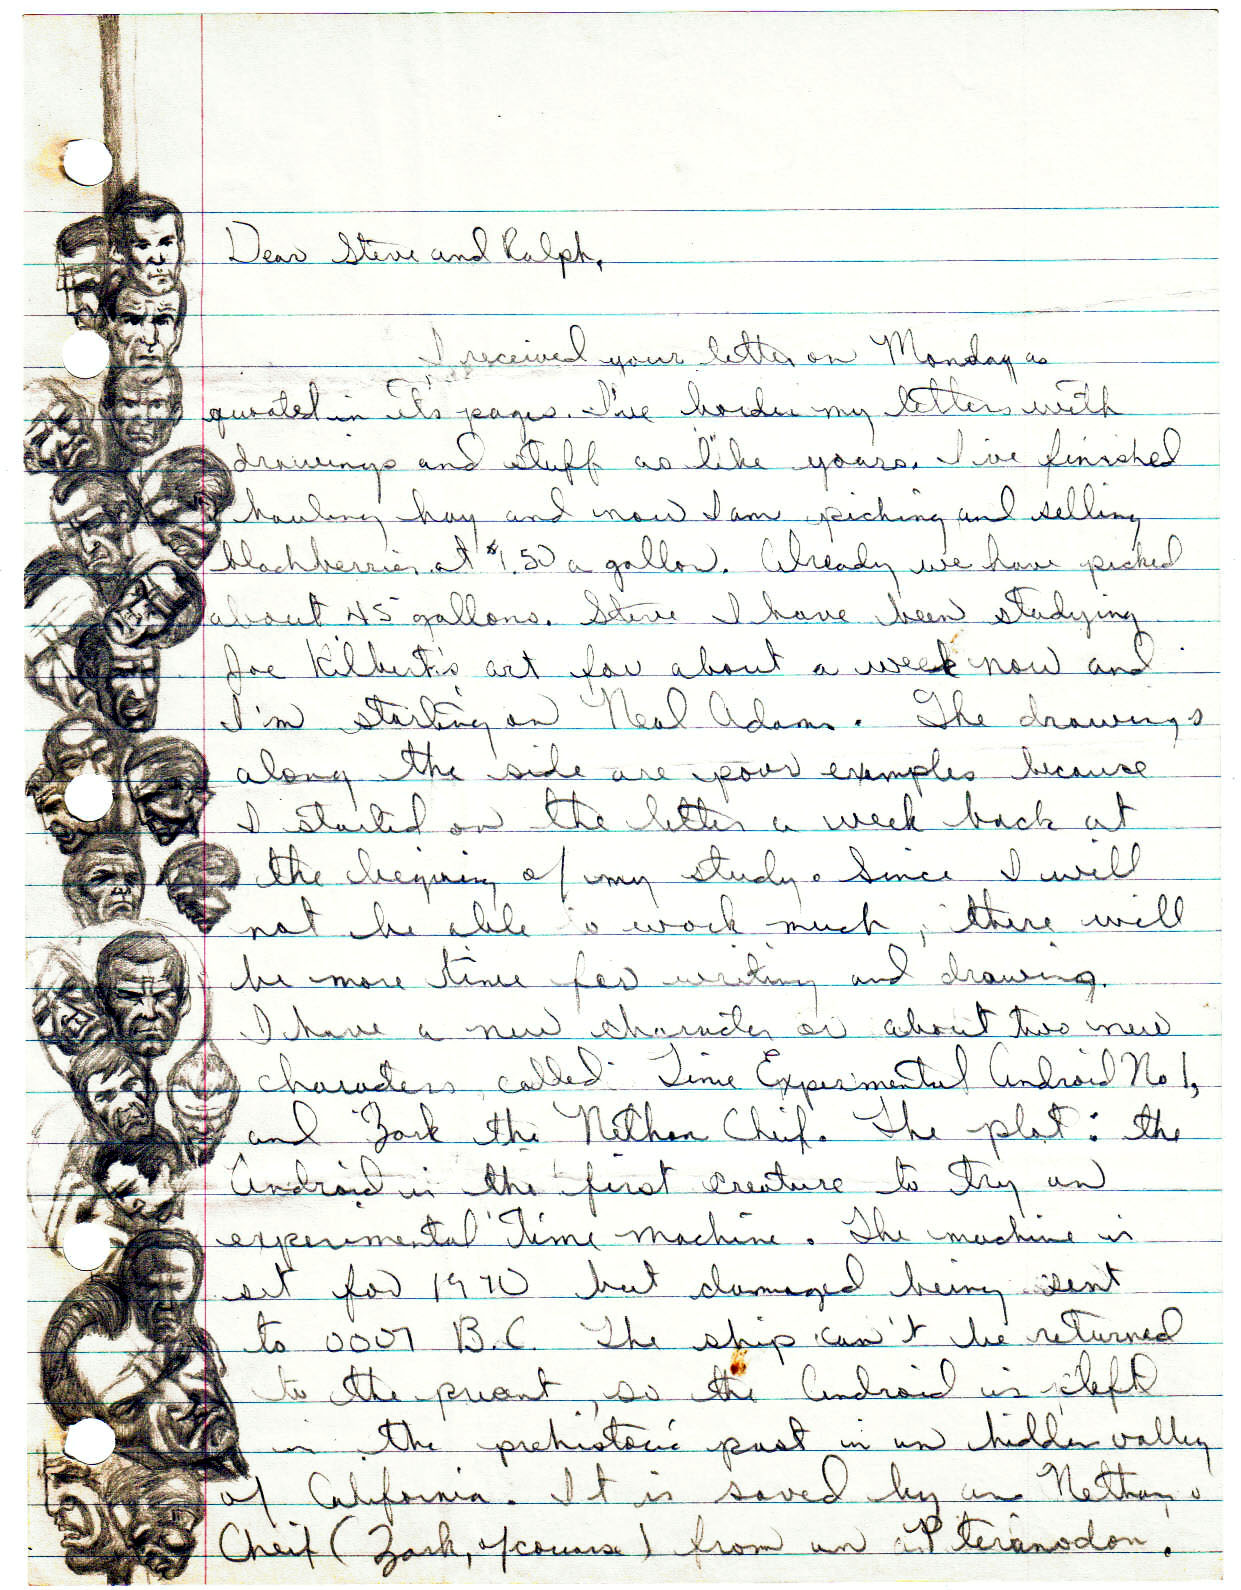 Dear Steve and Ralph,
I received your letter on Monday as
quoated in its pages. I've border my letters with
drawings and stuff as like yours. I've finished
hauling hay and now I am picking and selling
blackberries at $1.50 a gallon. Already we have picked
about 45 gallons. Steve I have been studying
Joe Kilbert's art for about a week now and
I'm starting on Neal Adams. The drawings
along the side are poor exemples because
I started on the letter a week back at
the begining of my study. Since I will
not be able to work much, there will
be more time for writing and drawing.
I have a new character or about two new
characters called: Time Experimental Android No 1,
and Zark the Nethan Chief. The plot: the
Android is the first creature to try an
experimental Time machine. The machine is
set for 1970 but damaged being sent
to 0007 B.C. The ship can't be returned
to the presant, so the Android is left
in the prehistoric past in an hidden valley
of California. It is saved by an Nethan
Cheif (Zark, of course) from an Pteranodon.